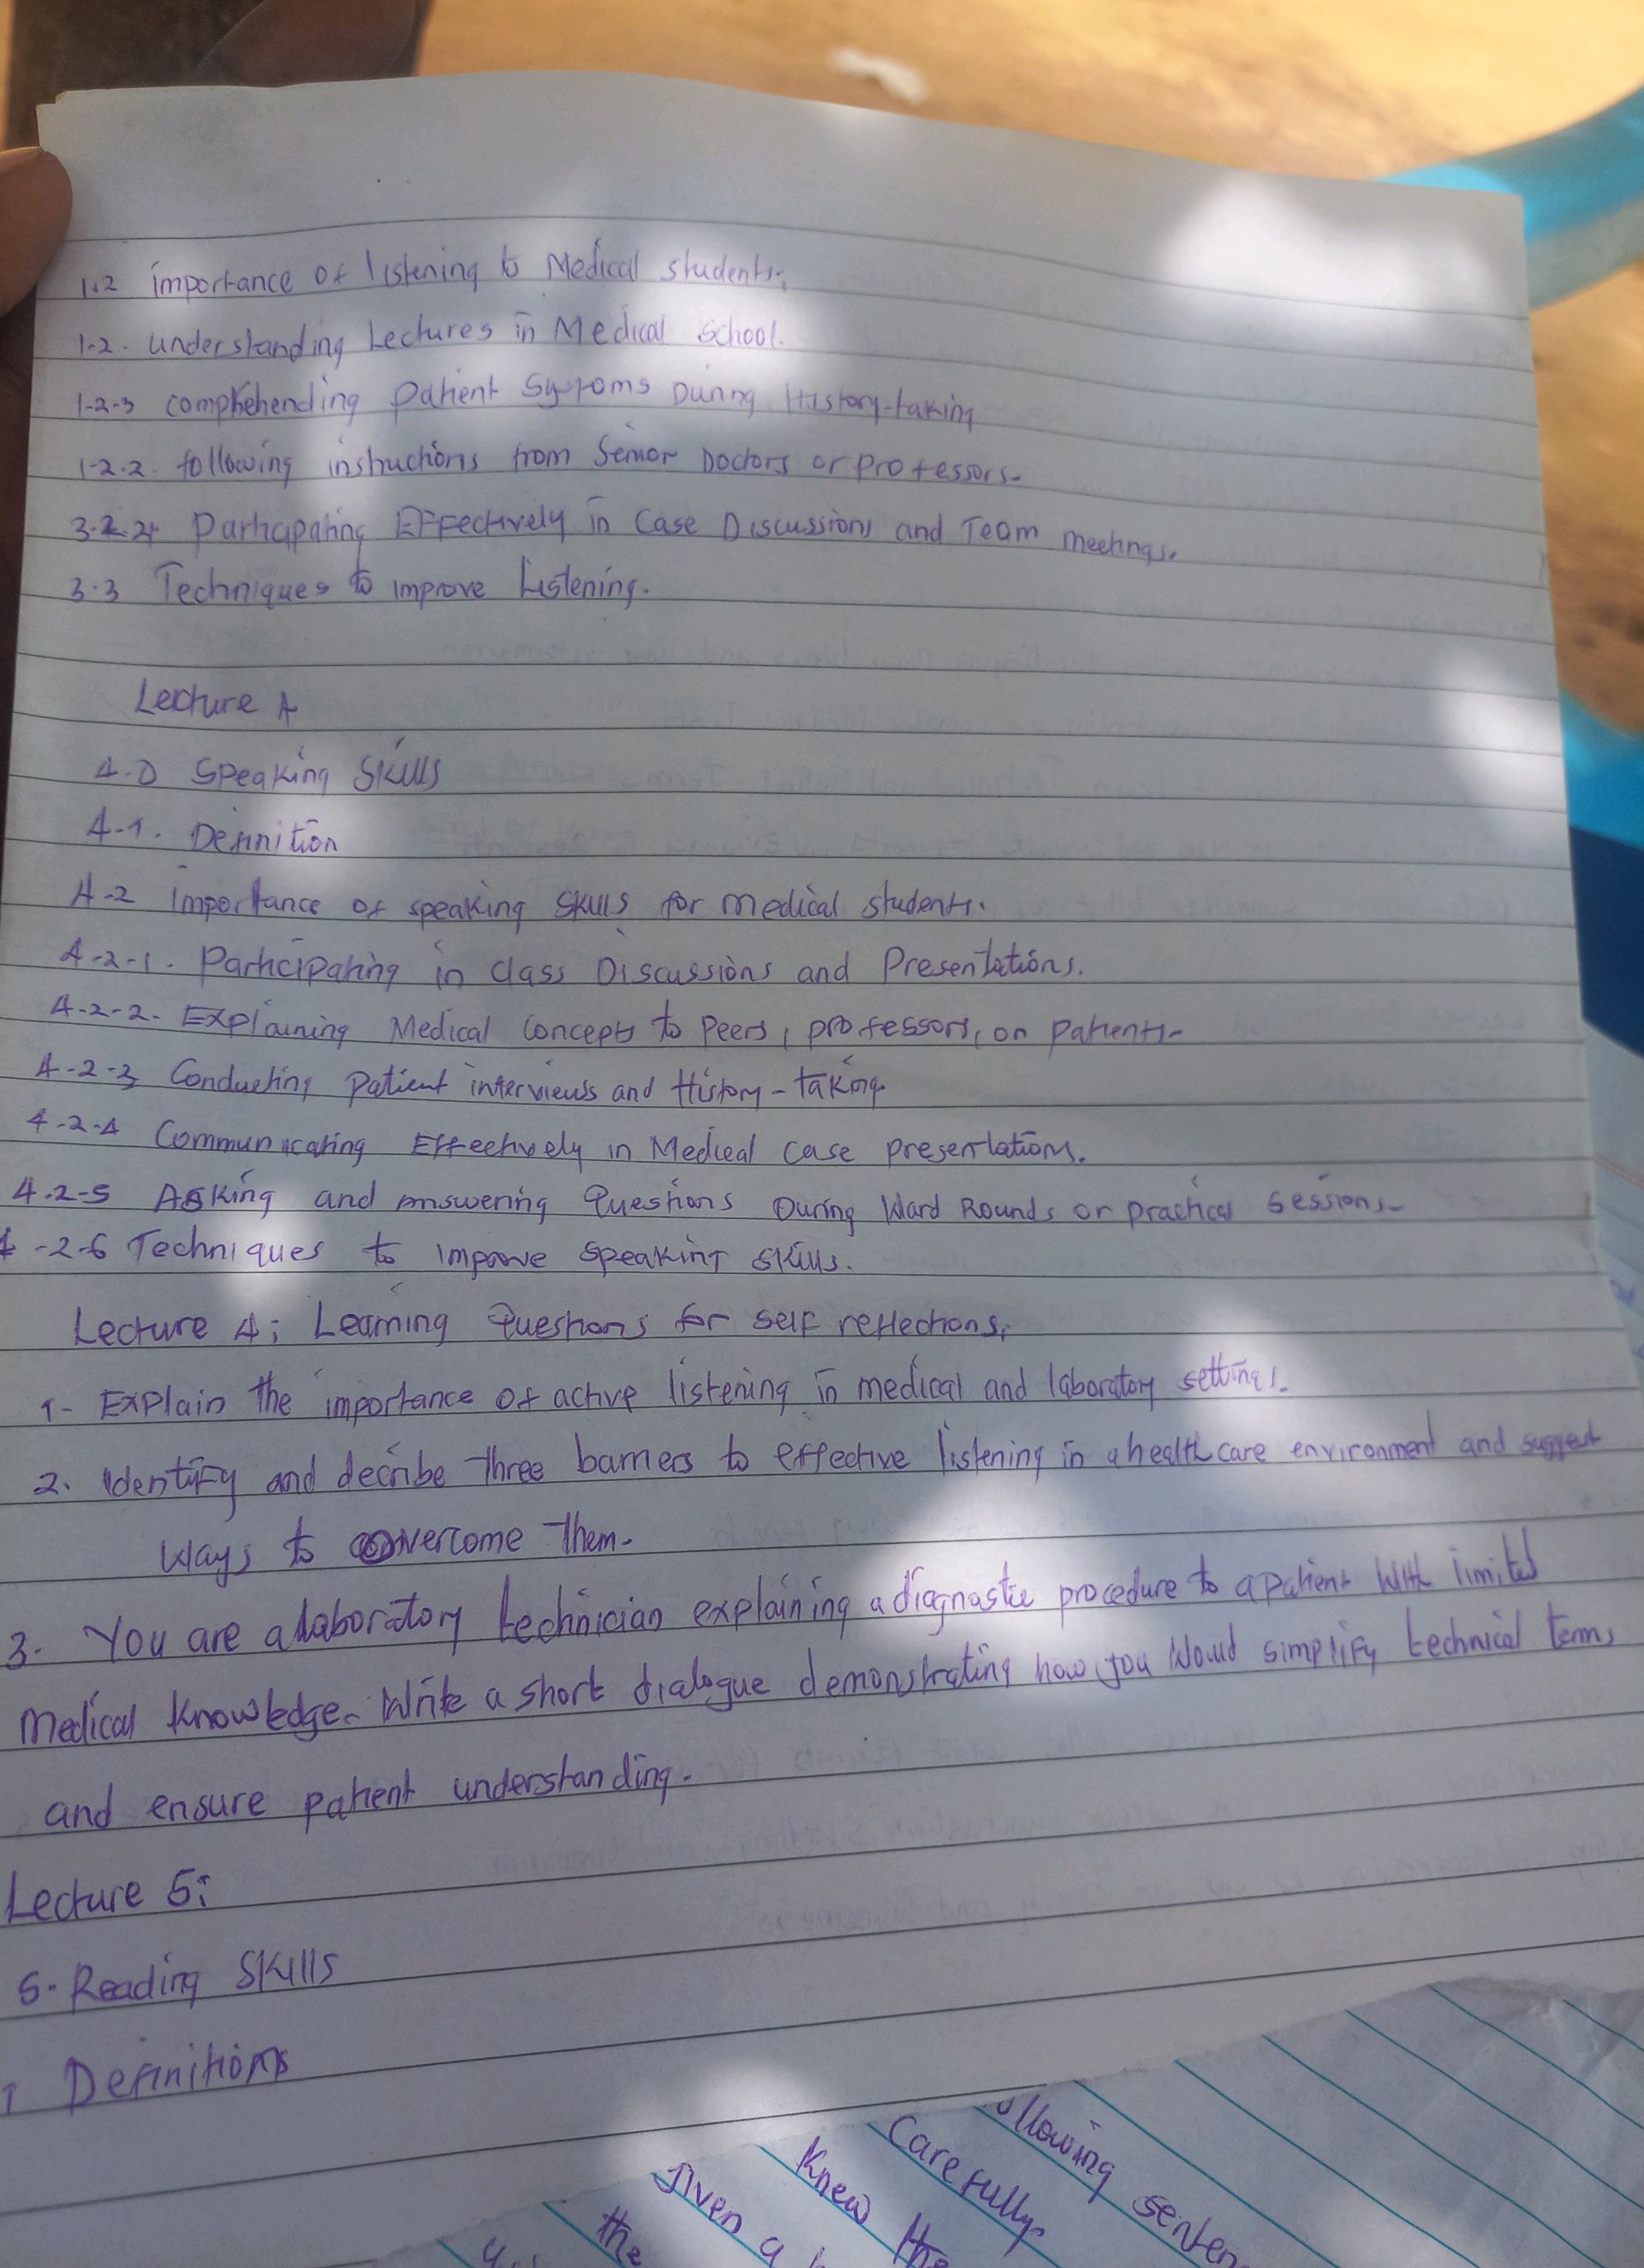 1.2 importance of listening to Medical students.
1-2. understanding Lectures in Medical School.
1-2-3 comprehending patient During History-taking
1-2.2. following instructions from Senior Doctors or professors.
Participating Effectively in Case Discussions and Team meetings.
3.3 Techniques to improve Listening.
Lecture 4
4.0 Speaking Skills
4-1. Definition
4-2 Importance of speaking skills for medical students.
4-2-1. Participating in class Discussions and Presentations.
4-2-2. Explaining Medical Concepts to Peers, professors, on patients-
4-2-3 Conducting patient interviews and History-taking
4-2-4 Communicating Effectively in Medical case presentations.
4.2-5 Asking and answering Questions During Ward Rounds or practical sessions-
4-2-6 Techniques to improve speaking skills.
Lecture 4; Learning Questions for self reflections;
1- Explain the importance of active listening in medical and laboratory settings.
2. Identify and decribe three barriers to effective listening in a healthcare environment and suggest
Ways to overcome them-
3. You are a laboratory technician explaining a diagnostic procedure to a patient with limited
Medical knowledge. Write a short dialogue demonstrating how you Would simplify technical terms
and ensure patient understanding.
Lecture 5:
5. Reading Skills
1 Definitions
ollowing senten
Carefully.
Knew the
Given a
the